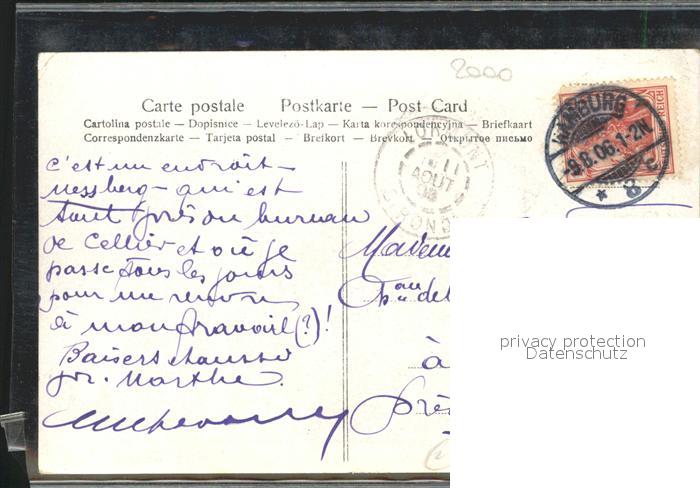 2000
Carte postale Postkarte — Post Card
Cartolina postale — Dopisnice — Levelező-Lap — Karta korespondencyjna — Briefkaart
Correspondenzkarte — Tarjeta postal — Brefkort — Brevkort — Открытое письмо
REICH
HAMBURG
-9.8.06.1-2N.
* 8 c
11
AOUT
c'est un endroit —
— qui est
tout près du bureau
de Cellier et où je
passe tous les jours
pour me
à mon travail (?)!
Baisers
Marthe.
à
près
privacy protection
Datenschutz